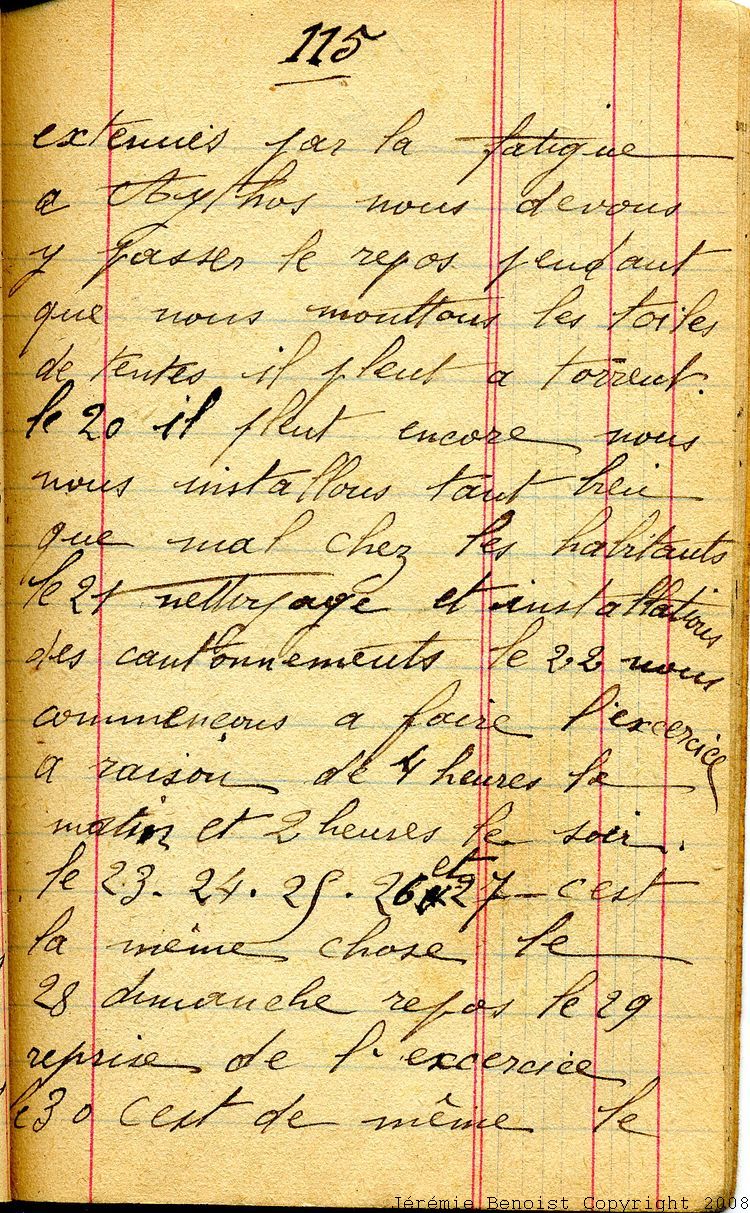 115
extenués par la fatigue
a Aythos nous devons
y passer le repos pendant
que nous mouttons les toiles
de tentes il pleut a torrent.
le 20 il pleut encore nous
nous installons tant bien
que mal chez les habitants
le 21 nettoyage et installations
des cantonnements le 22 nous
commencons a faire l'excercice
a raison de 4 heures le
matin et 2 heures le soir.
le 23. 24. 25. 26 et 27 c'est
la même chose le
28 dimanche repos le 29
reprise de l'excercice
le 30 c'est de même le
Jérémie Benoist Copyright 2008